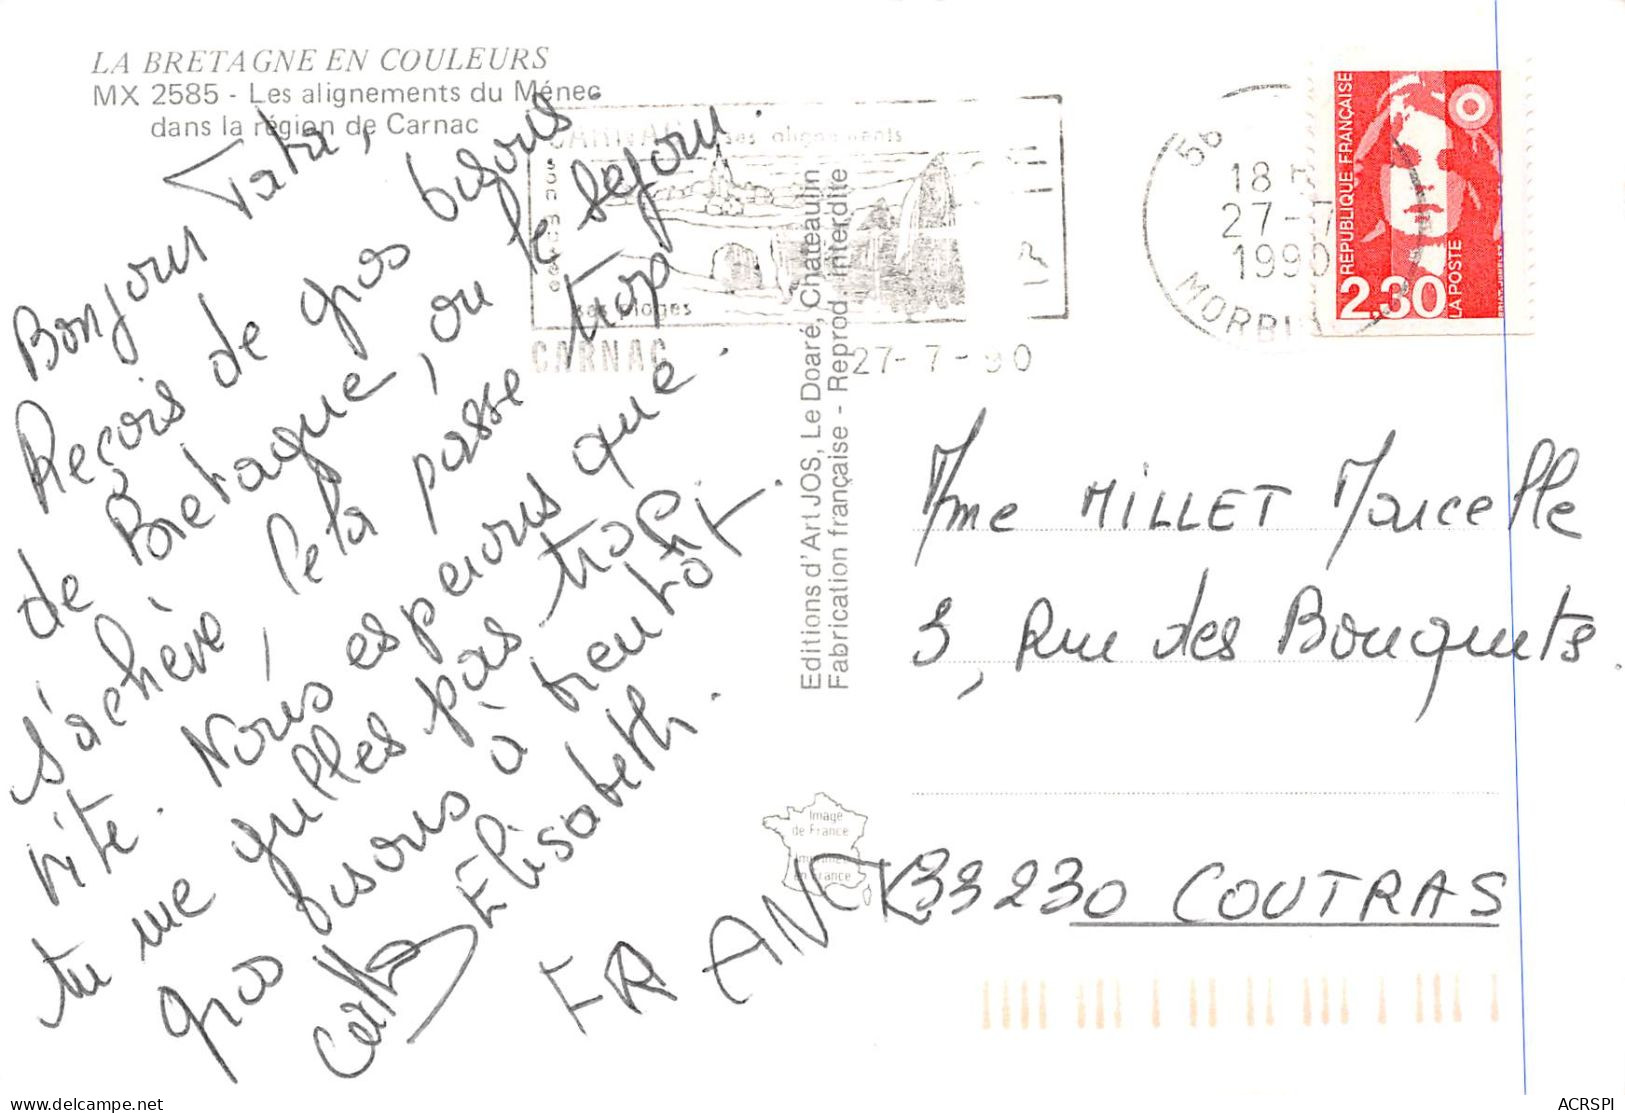 LA BRETAGNE EN COULEURS
MX 2585 - Les alignements du Ménec
dans la région de Carnac
Bonjour Tata,
Reçois de gros bisous
de Bretagne, où le séjour
s'achève, cela passe trop
vite. Nous espérons que
tu me gulles pas trop
gros bisous à bientôt.
Elisabeth.
FRANCK
CARNAC ses alignements
ses plages
CARNAC
27-7-90
Editions d'Art JOS, Le Doaré, Chateaulin
Fabrication française - Reprod. interdite
Image
de France
en France
56
18
27-7
1990
MORBI
REPUBLIQUE FRANÇAISE
2,30
LA POSTE
Mme MILLET Marcelle
3, Rue des Bouquets.
33230 COUTRAS
delcampe.net
ACRSPI